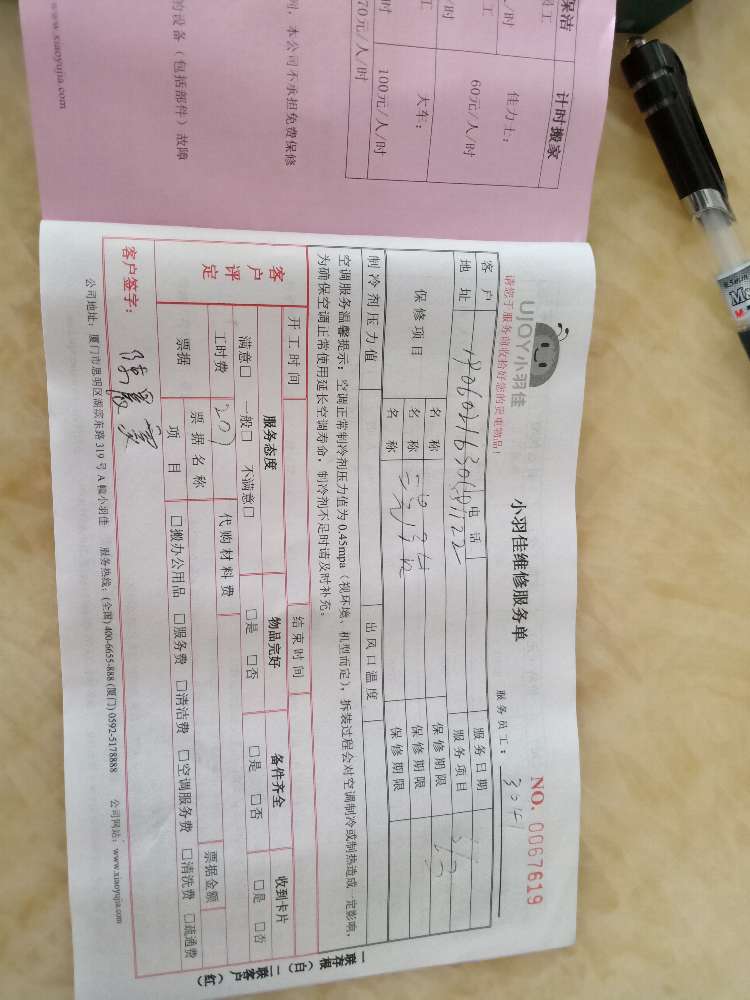 保洁
计时搬家
佳力士：
60元/人/时
大车：
100元/人/时
70元/人/时
时，本公司不承担免费保修
的设备（包括部件）故障
www.xiaoyujia.com
UJOY小羽佳
请您于服务前收拾好您的贵重物品！
小羽佳维修服务单
服务员工：
NO. 0067619
客户
地址
电话
服务日期
服务项目
保修项目
名称
保修期限
名称
保修期限
制冷剂压力值
出风口温度
空调服务温馨提示：空调正常制冷剂压力值为0.45mpa（视环境、机型而定），拆装过程会对空调制冷或制热造成一定影响，
为确保空调正常使用延长空调寿命，制冷剂不足时请及时补充。
开工时间
结束时间
客户评定
服务态度
物品完好
备件齐全
收到卡片
满意□ 一般□ 不满意□
□是 □否
□是 □否
□是 □否
工时费
代购材料费
票据
票据名称
票据金额
项目
□搬办公用品 □服务费 □清洁费 □空调服务费 □清洗费 □疏通费
客户签字：
公司地址：厦门市思明区湖滨东路319号A幢小羽佳 服务热线：(全国) 400-6655-888 (厦门) 0592-5178888 公司网站：www.xiaoyujia.com
一联存根（白） 二联客户（红）